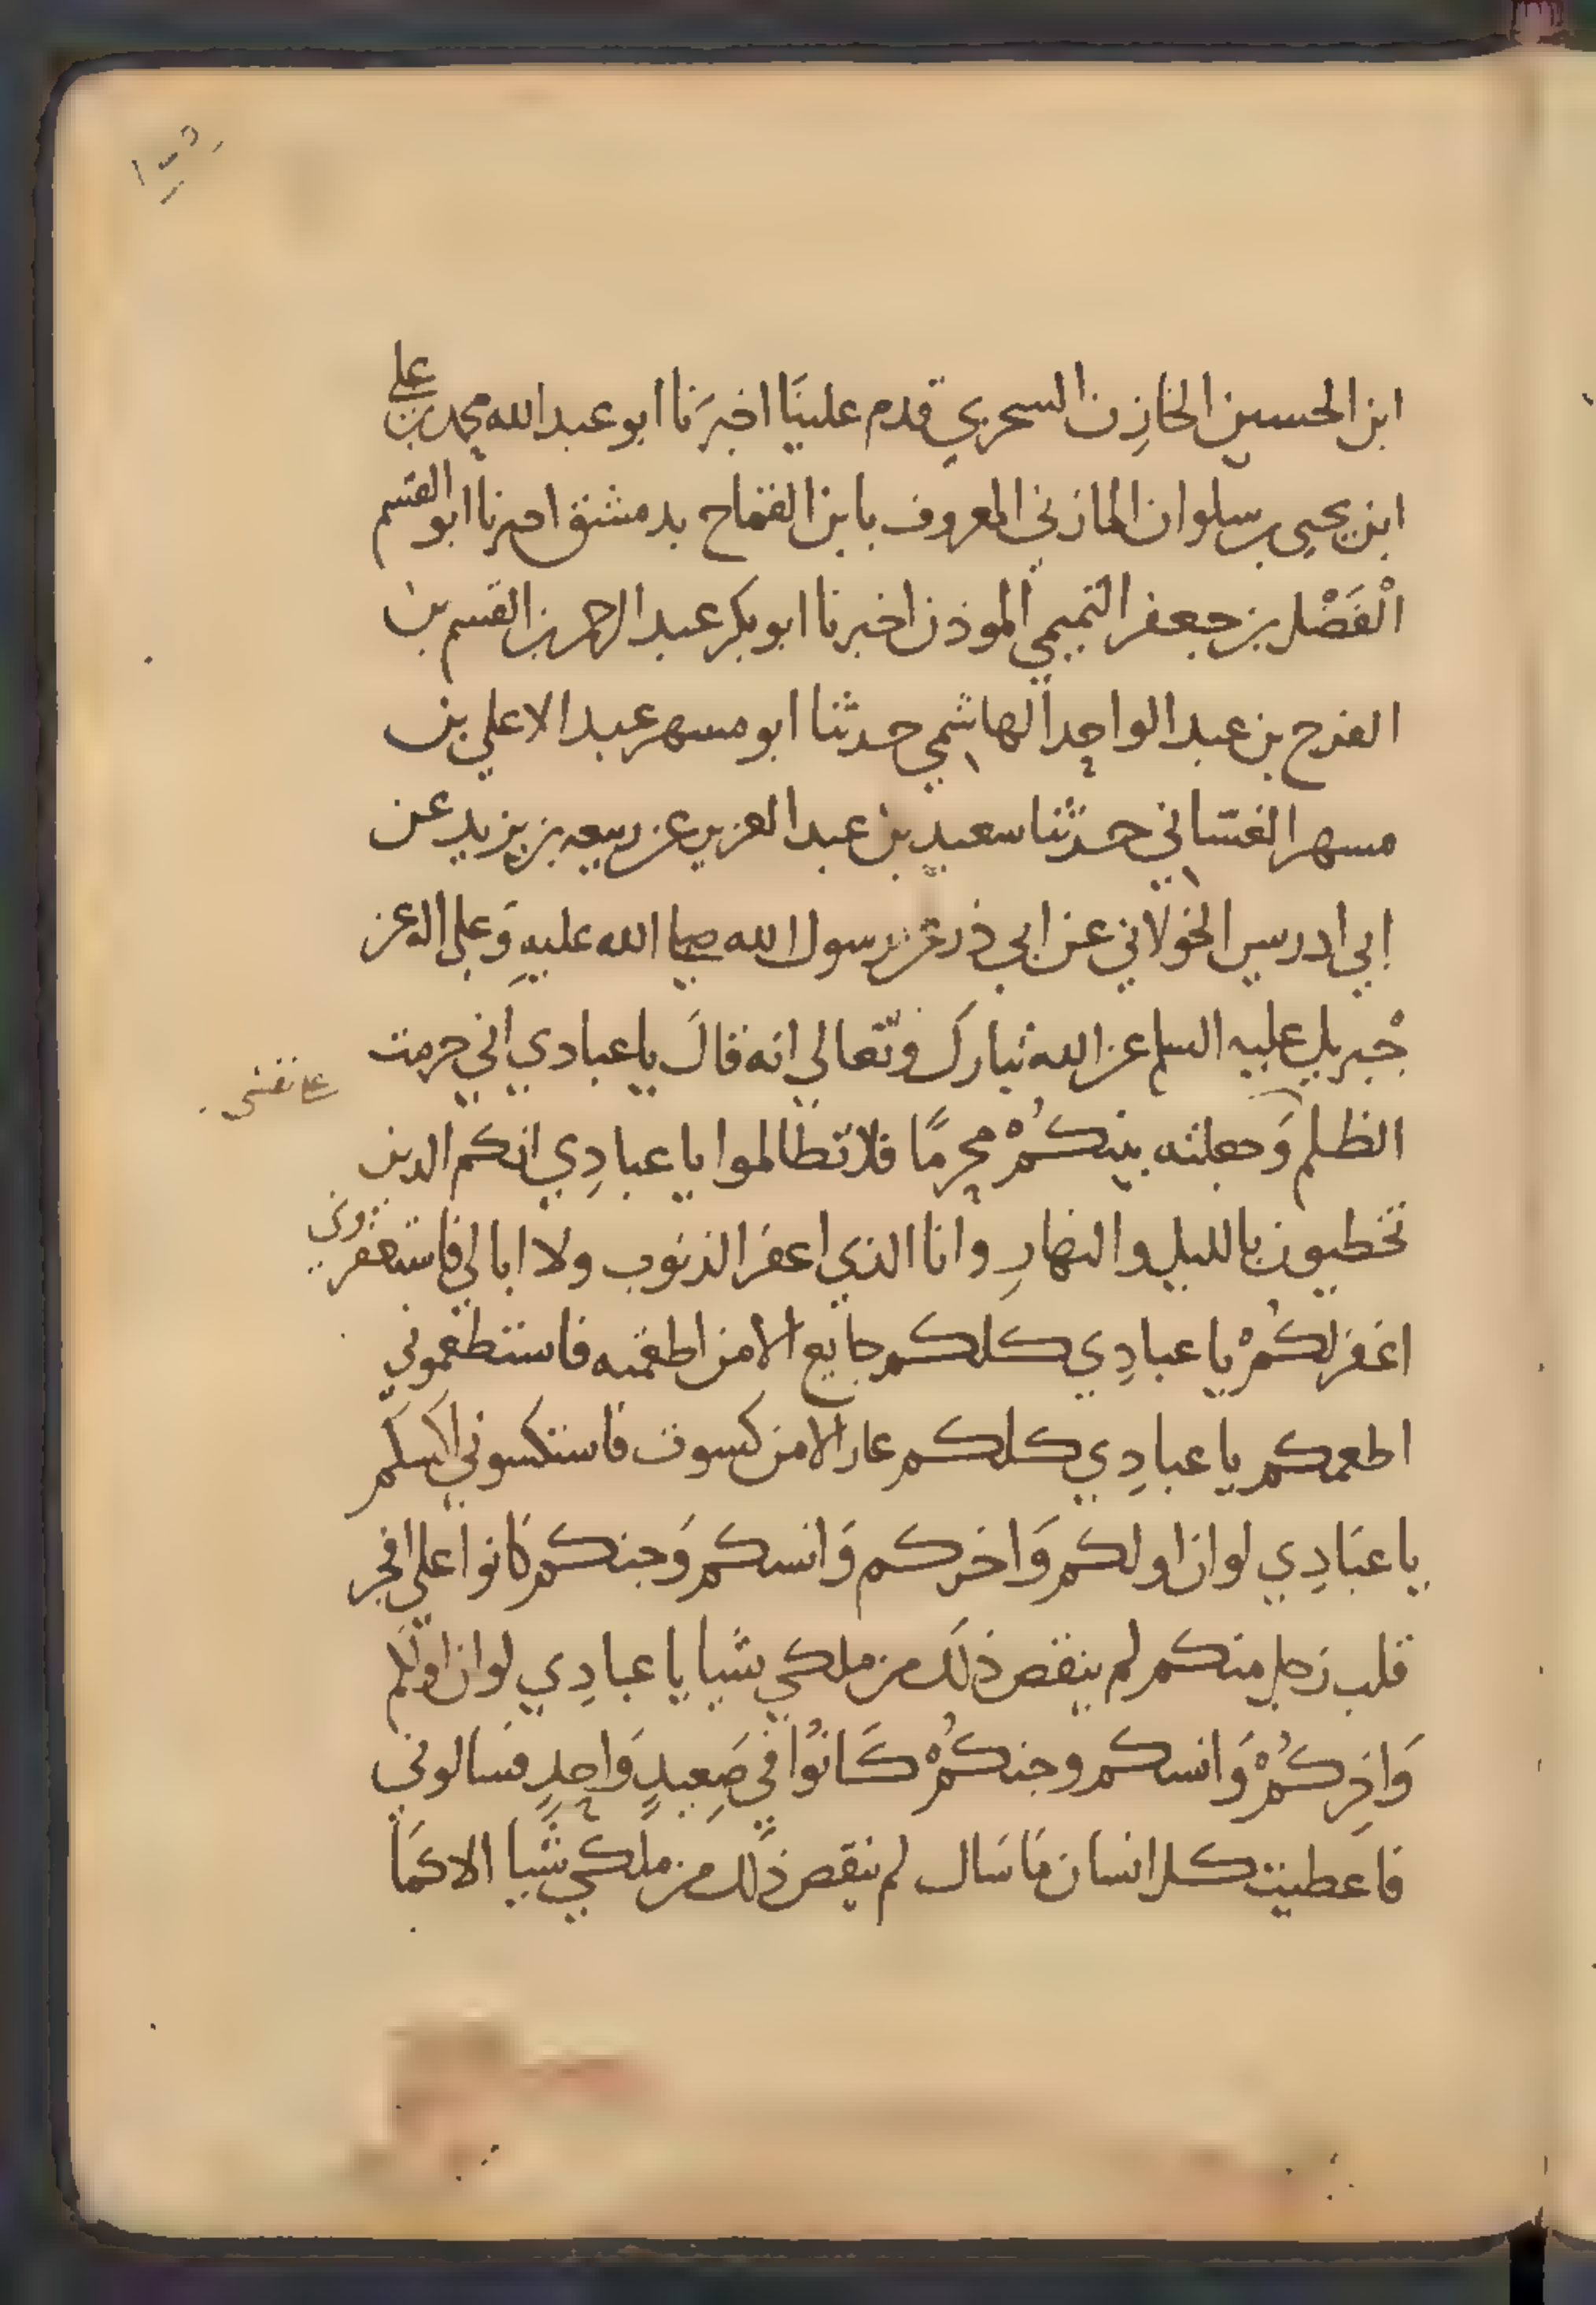 ابن الحسين الخازن السحري قدم علينَا اخبرَنا ابو عبد الله محمد بن علي
ابن يحيى بن سلوان المازني المعروف بابن القماح بدمشق اخبرنا ابو القسم
الْفَضْل بن جعفر التميمي الموذن اخبرنا ابو بكر عبد الرحمن بن القسم بن
الفرج بن عبد الواحد الهاشمي حدثنا ابو مسهر عبد الاعلي بن
مسهر الغساني حدثنا سعيد بن عبد العزيز عن ربيعه بن يزيد عن
ابي ادريس الخولاني عن ابي ذر عن رسول الله صلي الله عليهِ وَعلي اله عن
جْبريل عليه السلم عن الله تبارك وتَعالي انه قالَ يا عبادي اني حرمت
علي نفسي
الظلم وَجعلته بينكُمْ محرمًا فلا تظالموا يا عبادِي انكم الذين
تخطيون بالليل والنهارِ وانا الذي اغفر الذنوب ولا ابالي فاستغفروني
اغفر لكُمْ يا عبادِي كلكم جايع الا من اطعمته فاستطعموني
اطعمكم يا عبادِي كلكم عار الا من كسوت فاستكسوني اكسكم
يا عبَادِي لو ان اولكم وَاخركم وَانسكم وَجنكم كانوا علي افجر
قلب رجل منكم لم ينقص ذلك من ملكي شيا يا عبادِي لو ان اولكم
وَاخِركُمْ وَانسكم وجنكُمْ كَانوُا في صَعِيدٍ وَاحِدٍ فسالوني
فاعطيت كل انسان مَا سَال لم ينقص ذَلك من ملكي شيا الا كمَا